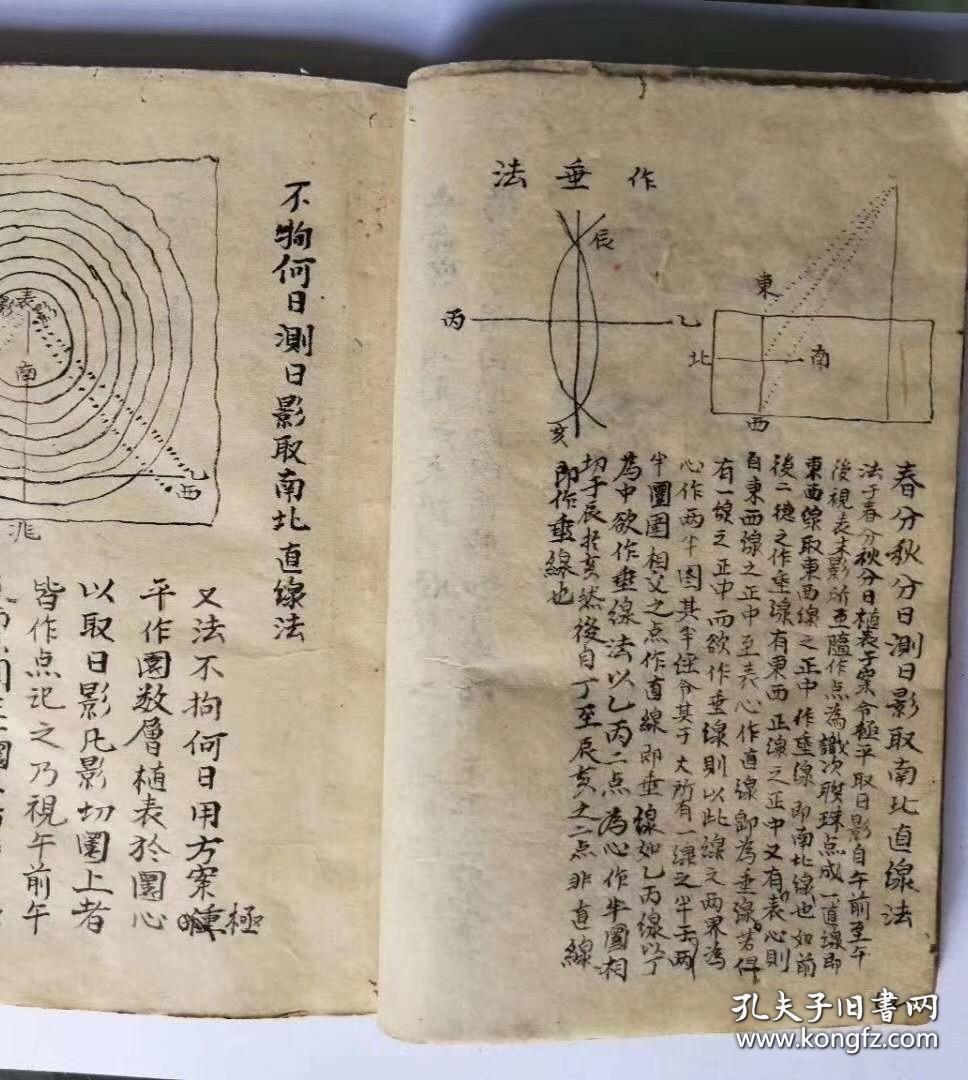 作垂法
東
北
南
西
辰
丙
乙
亥
春分秋分日測日影取南北直線法
法于春分秋分日植表于案令極平取日影自午前至午
後視表末影所至隨作点為識次聯珠点成一直線即
東西線取東西線之正中作垂線即南北線也如前
後二穗之作垂線有東西正線之正中又有表心則
自東西線之正中至表心作直線即為垂線若但
有一線之正中而欲作垂線則以此線之两界為
心作两半图其半徑令其于大所有一線之半于两
半圜圈相父之点作直線即垂線如乙丙線以丁
為中欲作垂線法以乙丙二点為心作半圜相
切于辰於亥然後自丁至辰亥之二点非直線
即作垂線也
不拘何日測日影取南北直線法
表
影
影
南
乙
西
北
又法不拘何日用方案極
平作圜数層植表於圜心
以取日影凡影切圜上者
皆作点记之乃視午前午
孔夫子旧书网
www.kongfz.com